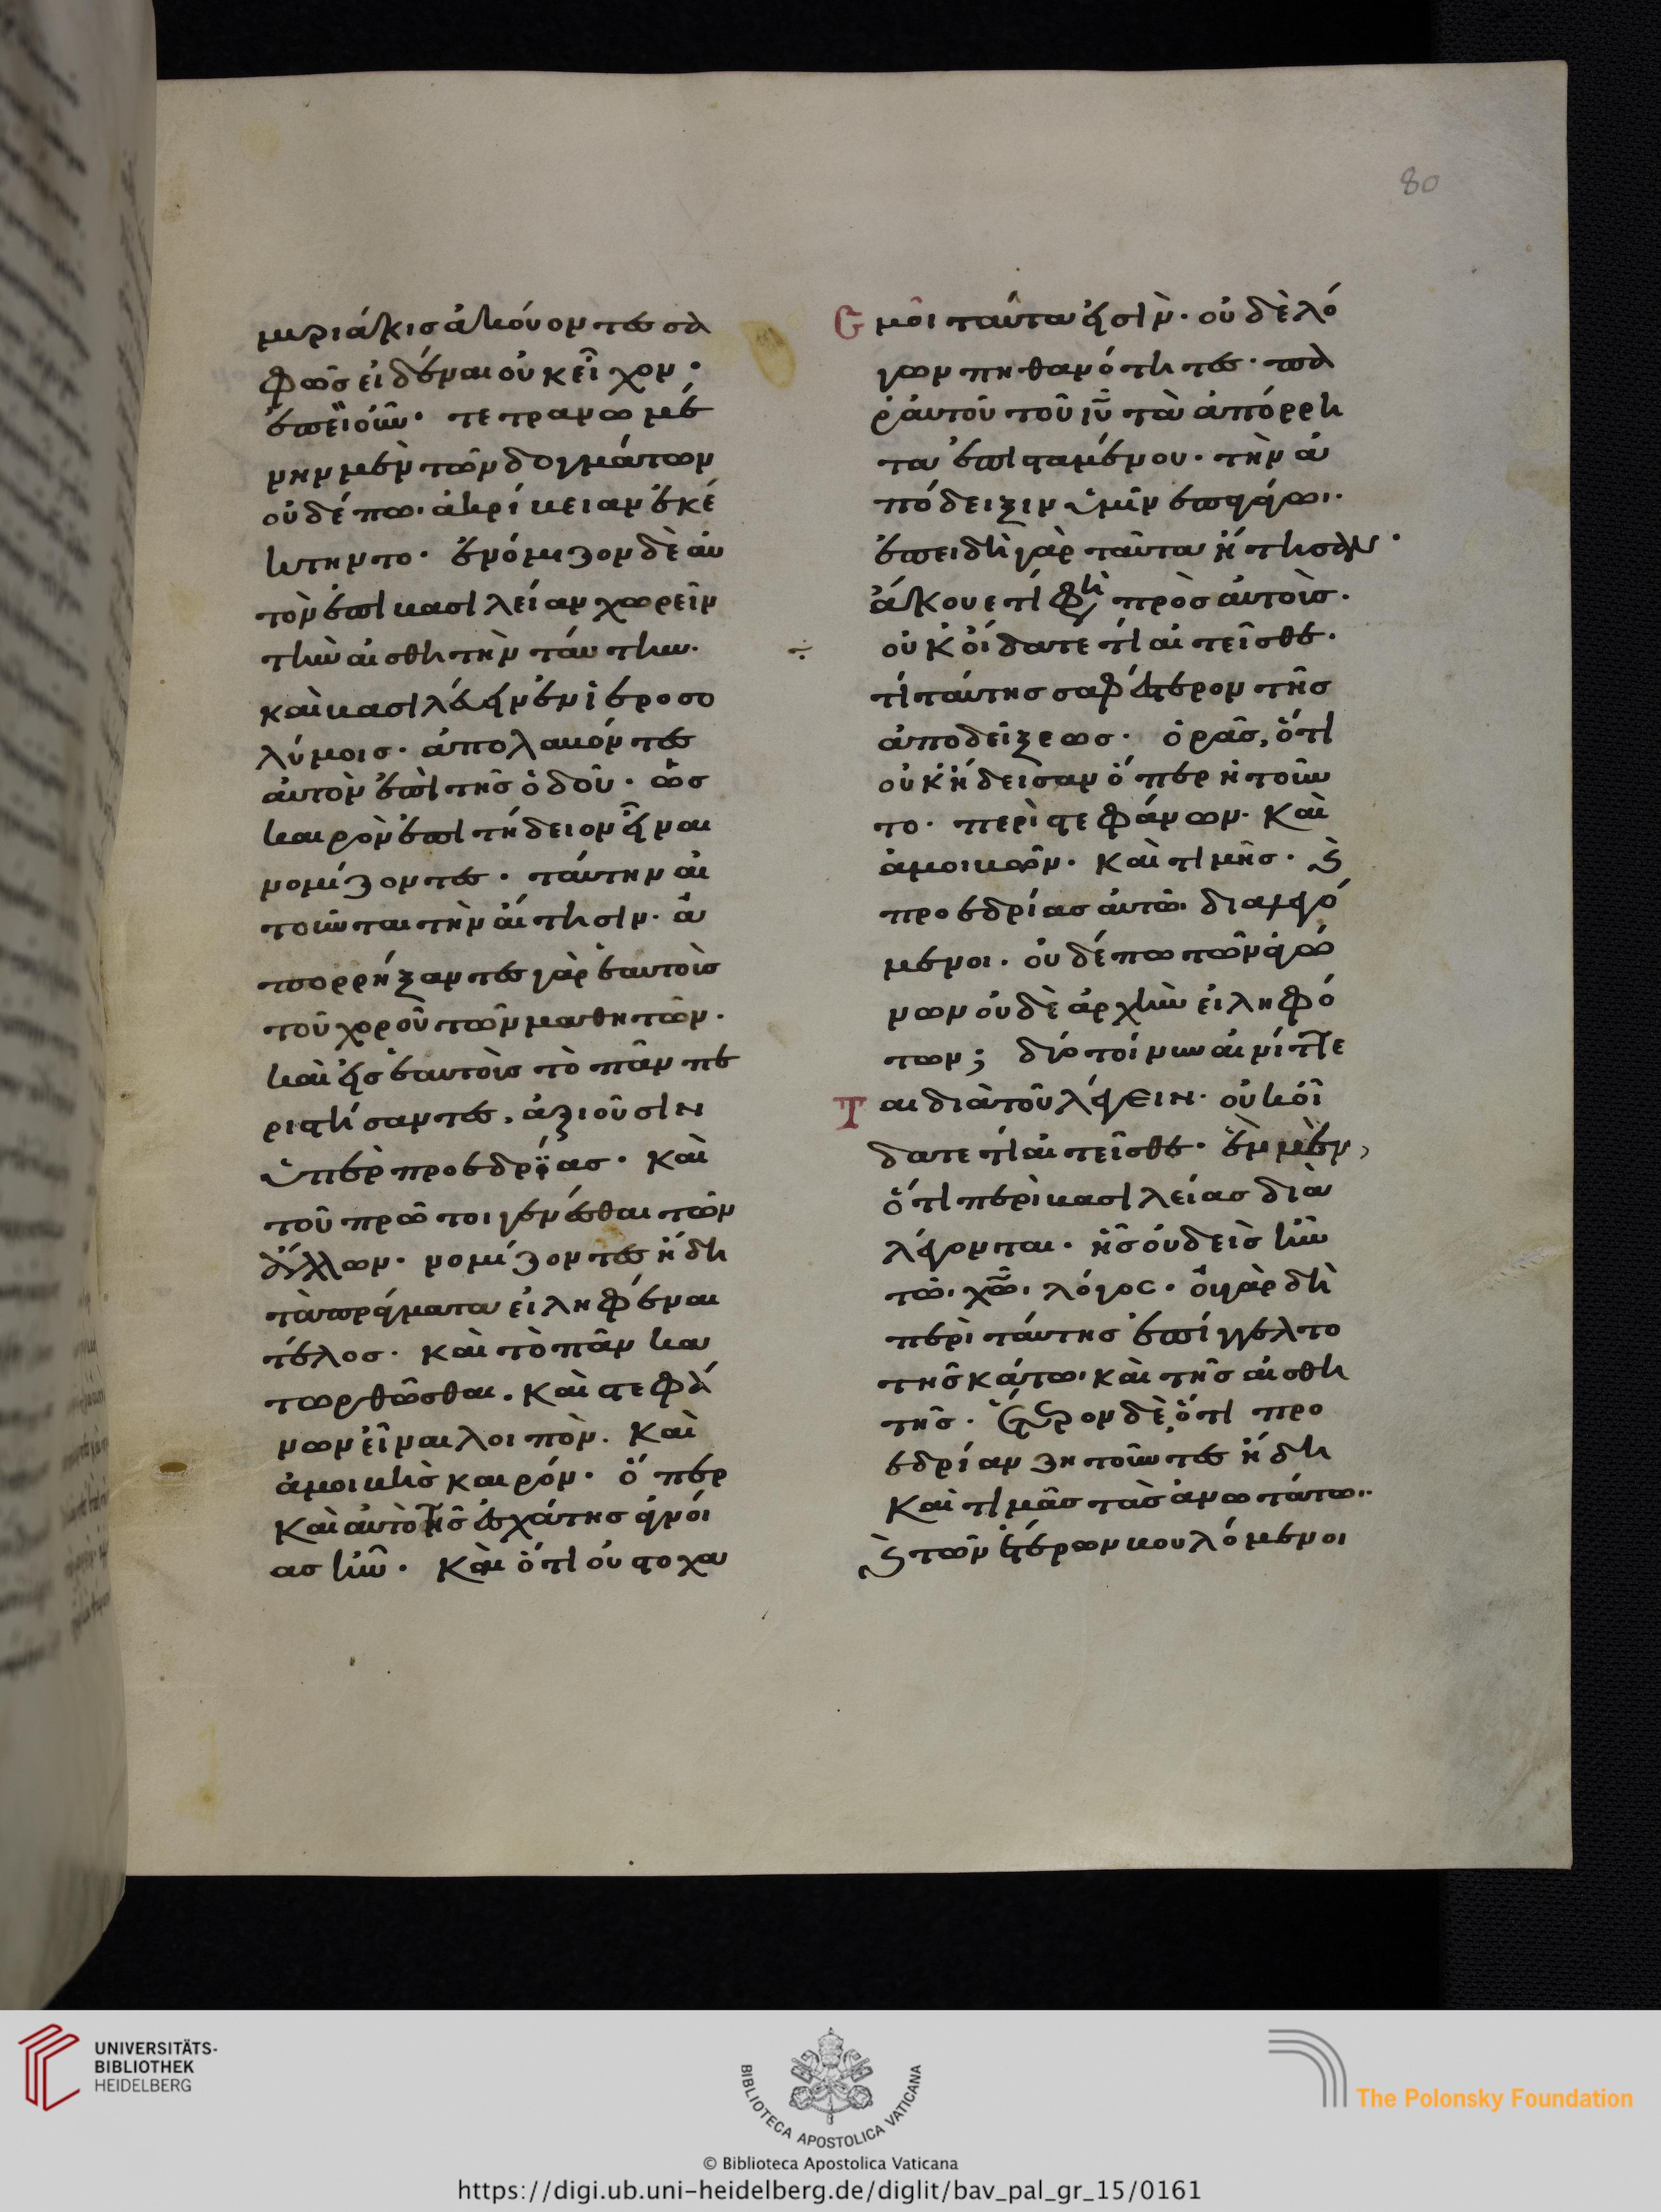 80
μυριάκισ ἀκούοντες σα
φῶσ εἰδέναι οὐκ εἶχον·
ἐπεὶ οὖν· τετρανωμέ
νην μὲν τῶν δογμάτων
οὐδέπω ἀκρίβειαν ἐκέ
κτηντο· ἐνόμιζον δὲ αὐ
τὸν ἐπὶ βασιλείαν χωρεῖν
τὴν αἰσθητὴν ταύτην·
καὶ βασιλεύειν ἐν ἱεροσο
λύμοισ· ἀπολαβόντες
αὐτὸν ἐπὶ τῆσ ὁδοῦ· ὡσ
καιρὸν ἐπιτήδειον εἶναι
νομίζοντες· ταύτην αἰ
τοῦνται τὴν αἴτησιν· ἀ
πορρήξαντες γὰρ ἑαυτοὺσ
τοῦ χοροῦ τῶν μαθητῶν·
καὶ εἰσ ἑαυτοὺσ τὸ πᾶν πε
ριστήσαντες, ἀξιοῦσιν
ὑπὲρ προεδρίασ· καὶ
τοῦ πρῶτοι γενέσθαι τῶν
ἄλλων· νομίζοντες ἤδη
τὰ πράγματα εἰληφέναι
τέλοσ· καὶ τὸ πᾶν κα
τωρθῶσθαι. καὶ στεφά
νων εἶναι λοιπὸν. καὶ
ἀμοιβῆσ καιρόν· ὅπερ
καὶ αὐτὸ τῆσ ἐσχάτησ ἀνοί
ασ ἦν· καὶ ὅτι οὐ στοχα
Ἐμοὶ ταῦτα εἰσὶν· οὐδὲ λό
γων πιθανότητες· πα
ρ' αὐτοῦ τοῦ ιυ τὰ ἀπόρρη
τα ἐπισταμένου· τὴν ἀ
πόδειξιν ὑμῖν ἐπάγω·
ἐπειδὴ γὰρ ταῦτα ᾔτησαν·
ἄκουε τί φη πρὸσ αὐτοὺσ·
οὐκ οἴδατε τί αἰτεῖσθε·
τί ταύτησ σαφέστερον τῆσ
ἀποδείξεωσ· ὁρᾶσ, ὅτι
οὐκ ᾔδεισαν ὅπερ ᾐτοῦν
το· περὶ στεφάνων· καὶ
ἀμοιβῶν· καὶ τιμῆσ· ϗ
προεδρίασ αὐτῷ διαλεγό
μενοι· οὐδέπω τῶν ἀγώ
νων οὐδὲ ἀρχὴν εἰληφό
των; δύο τοίνυν αἰνίττε
Ται διὰ τοῦ λέγειν· οὐκ οἴ
δατε τί αἰτεῖσθε· ἓν μὲν,
ὅτι περὶ βασιλείασ δια
λέγονται· ἧσ οὐδεὶσ ἦν
τῶ χω λόγοσ· οὐ γὰρ δὴ
περὶ ταύτησ ἐπήγγελτο
τῆσ κάτω καὶ τῆσ αἰσθη
τῆσ· ἕτερον δὲ, ὅτι προ
εδρίαν ζητοῦντες ἤδη
καὶ τιμὰσ τὰσ ἀνωτάτω·
ϗ τῶν ἑτέρων βουλόμενοι
UNIVERSITÄTS-
BIBLIOTHEK
HEIDELBERG
BIBLIOTECA APOSTOLICA VATICANA
The Polonsky Foundation
© Biblioteca Apostolica Vaticana
https://digi.ub.uni-heidelberg.de/diglit/bav_pal_gr_15/0161